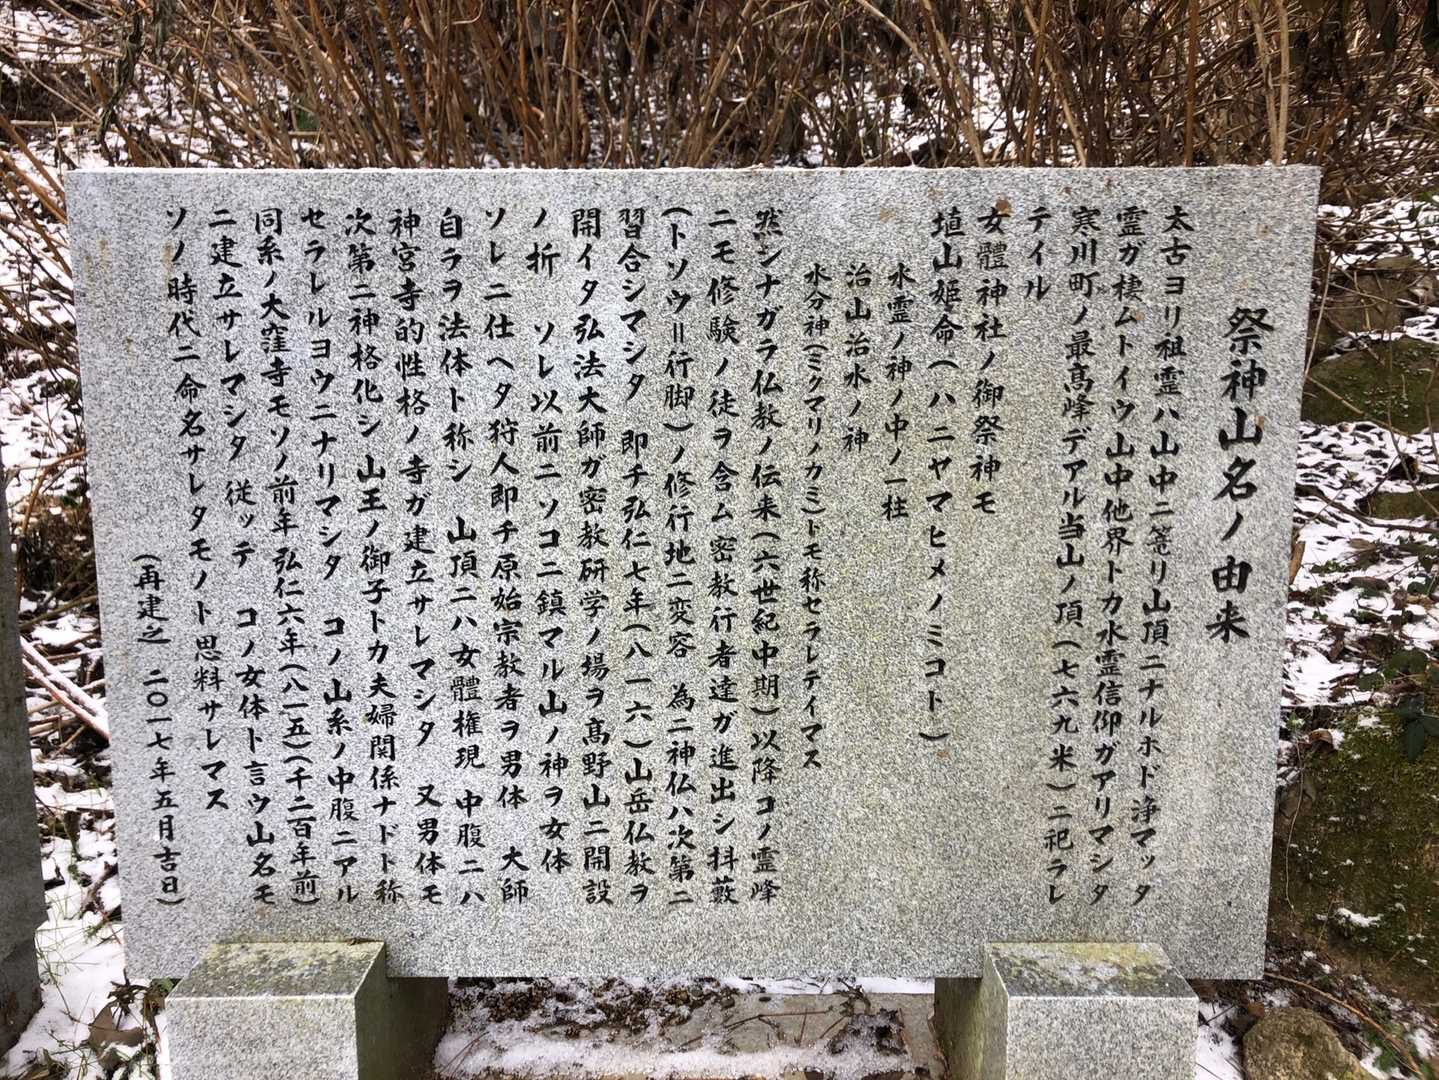 祭神山名ノ由来
太古ヨリ祖霊ハ山中ニ篭リ山頂ニナルホド浄マッタ
霊ガ棲ムトイウ山中他界トカ水霊信仰ガアリマシタ
寒川町ノ最高峰デアル当山ノ頂(七六九米)ニ祀ラレ
テイル
女體神社ノ御祭神モ
埴山姫命(ハニヤマヒメノミコト)
水霊ノ神ノ中ノ一柱
治山治水ノ神
水分神(ミクマリノカミ)トモ称セラレテイマス
然シナガラ仏教ノ伝来(六世紀中期)以降コノ霊峰
ニモ修験ノ徒ヲ含ム密教行者達ガ進出シ抖藪
(トソウ=行脚)ノ修行地ニ変容 為ニ神仏ハ次第ニ
習合シマシタ 即チ弘仁七年(八一六)山岳仏教ヲ
開イタ弘法大師ガ密教研学ノ場ヲ髙野山ニ開設
ノ折 ソレ以前ニソコニ鎮マル山ノ神ヲ女体
ソレニ仕ヘタ狩人即チ原始宗教者ヲ男体 大師
自ラヲ法体ト称シ 山頂ニハ女體権現 中腹ニハ
神宮寺的性格ノ寺ガ建立サレマシタ 又男体モ
次第ニ神格化シ山王ノ御子トカ夫婦関係ナドト称
セラレルヨウニナリマシタ コノ山系ノ中腹ニアル
同系ノ大窪寺モソノ前年弘仁六年(八一五)(千二百年前)
ニ建立サレマシタ 従ッテ コノ女体ト言ウ山名モ
ソノ時代ニ命名サレタモノト思料サレマス
(再建之 二〇一七年五月吉日)